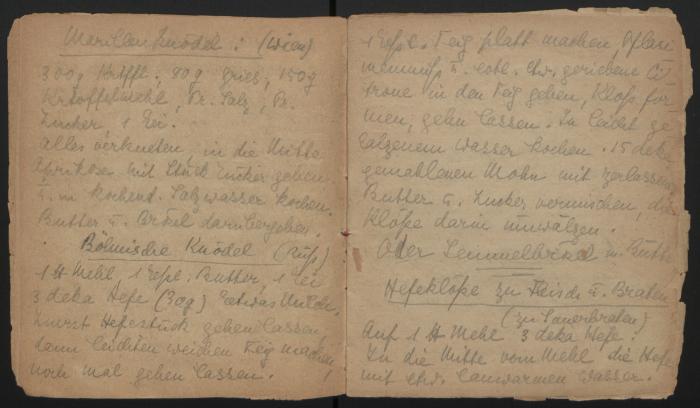 Marillen Knödel: (Wien)
300g Krtffl., 80g Gries, 150g
Krtoffelmehl, Pr. Salz, Pr.
Zucker, 1 Ei.
Alles verkneten, in die Mitte
Aprikose mit Stück Zucker geben
u. in kochend. Salzwasser kochen.
Butter u. Brösel darübergeben.
Böhmische Knödel
1 ℔ Mehl, 1 Essl. Butter, 1 Ei
3 deka Hefe (30g) etwas Milch.
Zuerst Hefestück gehen lassen,
dann leichten weichen Teig machen,
noch mal gehen lassen.
1 Essl. Teig platt machen, Pflau
menmuß u. etw. geriebene Ci
trone in den Teig geben, Kloß for
men, gehn lassen. In leicht ge
salzenem Wasser kochen. 15 deka
gemahlenen Mohn mit zerlassener
Butter u. Zucker vermischen, die
Klöße darin umwälzen.
Oder Semmelbrösel m. Butter
Hefeklöße zu Fleisch u. Braten
(zu Sauerbraten)
Auf 1 ℔ Mehl 3 deka Hefe.
In die Mitte vom Mehl die Hefe
mit etw. lauwarmen Wasser.